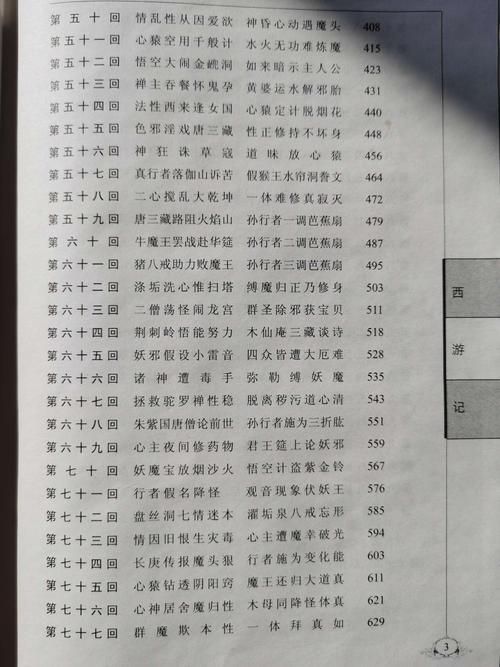 第五十回 情乱性从因爱欲 神昏心动遇魔头 408
第五十一回 心猿空用千般计 水火无功难炼魔 415
第五十二回 悟空大闹金𡺾洞 如来暗示主人公 423
第五十三回 禅主吞餐怀鬼孕 黄婆运水解邪胎 431
第五十四回 法性西来逢女国 心猿定计脱烟花 440
第五十五回 色邪淫戏唐三藏 性正修持不坏身 448
第五十六回 神狂诛草寇 道昧放心猿 456
第五十七回 真行者落伽山诉苦 假猴王水帘洞誊文 464
第五十八回 二心搅乱大乾坤 一体难修真寂灭 472
第五十九回 唐三藏路阻火焰山 孙行者一调芭蕉扇 479
第六十回 牛魔王罢战赴华筵 孙行者二调芭蕉扇 487
第六十一回 猪八戒助力败魔王 孙行者三调芭蕉扇 495
第六十二回 涤垢洗心惟扫塔 缚魔归正乃修身 503
第六十三回 二僧荡怪闹龙宫 群圣除邪获宝贝 511
第六十四回 荆刺岭悟能努力 木仙庵三藏谈诗 518
第六十五回 妖邪假设小雷音 四众皆遭大厄难 528
第六十六回 诸神遭毒手 弥勒缚妖魔 535
第六十七回 拯救驼罗禅性稳 脱离秽污道心清 543
第六十八回 朱紫国唐僧论前世 孙行者施为三折肱 551
第六十九回 心主夜间修药物 君王筵上论妖邪 559
第七十回 妖魔宝放烟沙火 悟空计盗紫金铃 567
第七十一回 行者假名降怪 观音现象伏妖王 576
第七十二回 盘丝洞七情迷本 濯垢泉八戒忘形 585
第七十三回 情因旧恨生灾毒 心主遭魔幸破光 594
第七十四回 长庚传报魔头狠 行者施为变化能 603
第七十五回 心猿钻透阴阳窍 魔王还归大道真 611
第七十六回 心神居舍魔归性 木母同降怪体真 621
第七十七回 群魔欺本性 一体拜真如 629
西
游
记
3